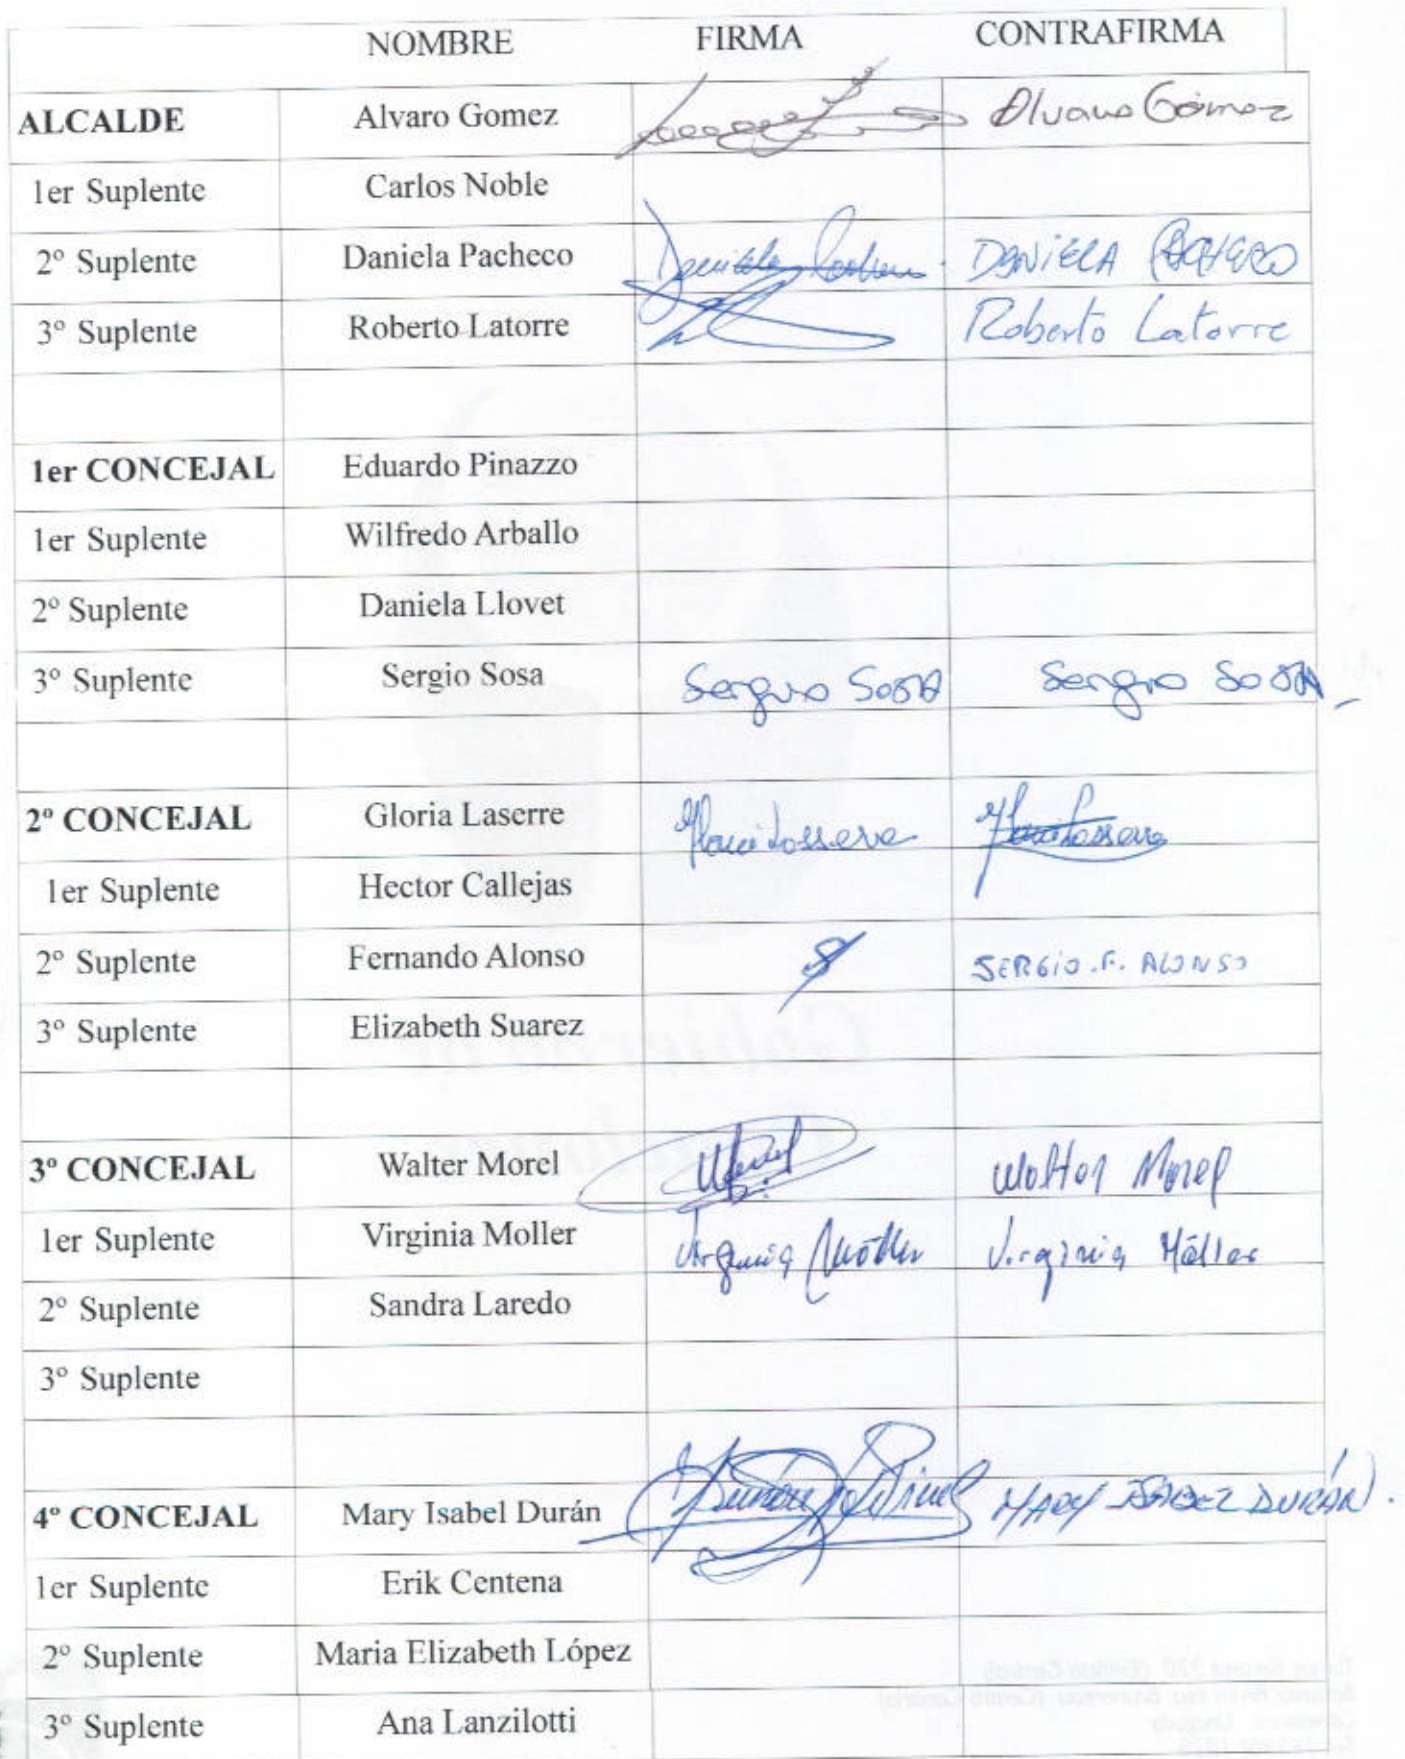 NOMBRE FIRMA CONTRAFIRMA
ALCALDE Alvaro Gomez Alvaro Gómez
1er Suplente Carlos Noble
2º Suplente Daniela Pacheco Daniela DANIELA PACHECO
3º Suplente Roberto Latorre Roberto Latorre
1er CONCEJAL Eduardo Pinazzo
1er Suplente Wilfredo Arballo
2º Suplente Daniela Llovet
3º Suplente Sergio Sosa Sergio Sosa Sergio Sosa
2º CONCEJAL Gloria Laserre
1er Suplente Hector Callejas
2º Suplente Fernando Alonso SERGIO.F. ALONSO
3º Suplente Elizabeth Suarez
3º CONCEJAL Walter Morel Walter Morel
1er Suplente Virginia Moller Virginia Möller Virginia Möller
2º Suplente Sandra Laredo
3º Suplente
4º CONCEJAL Mary Isabel Durán MARY ISABEL DURÁN.
1er Suplente Erik Centena
2º Suplente Maria Elizabeth López
3º Suplente Ana Lanzilotti